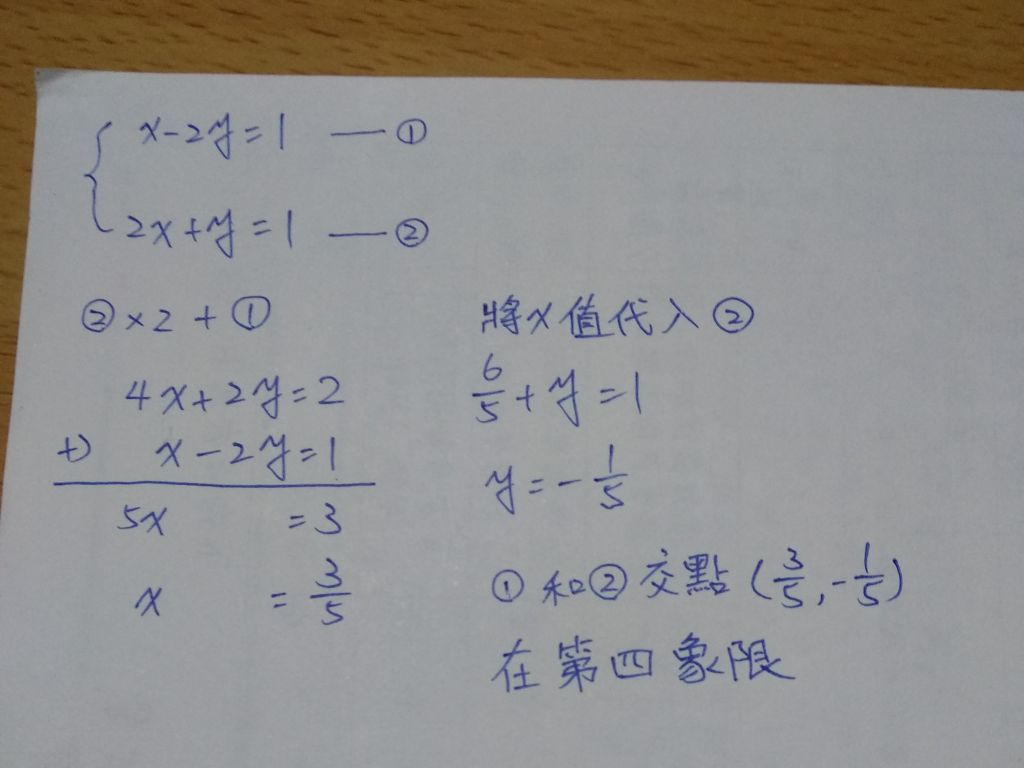 x-2y=1 —①
2x+y=1 —②
②×2+①
4x+2y=2
+) x-2y=1
5x =3
x =3/5
將x值代入②
6/5+y=1
y=-1/5
①和②交點(3/5,-1/5)
在第四象限